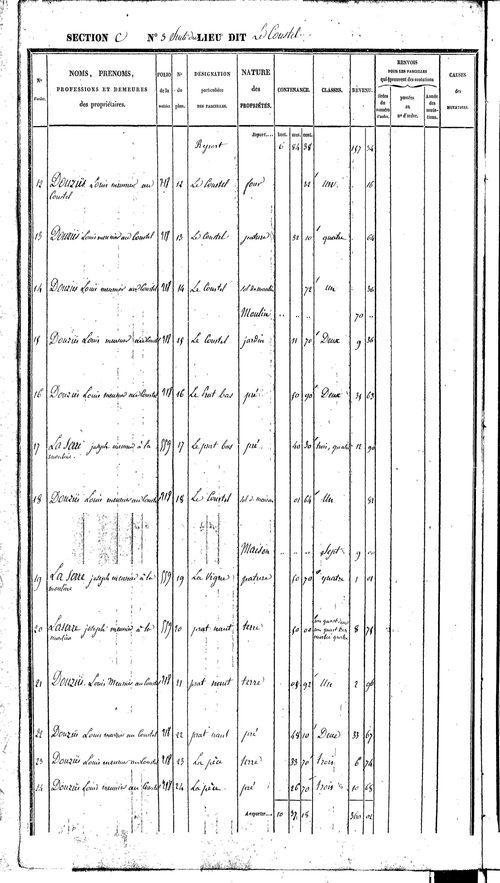 SECTION C N° 3 LIEU DIT Le Coustel
N° d'ordre.
NOMS, PRENOMS,
PROFESSIONS ET DEMEURES
des propriétaires.
FOLIO
de la
matrice.
N°
du
plan.
DÉSIGNATION
particulière
DES PARCELLES.
NATURE
des
PROPRIÉTÉS.
CONTENANCE.
CLASSES.
REVENU.
RENVOIS
POUR LES PARCELLES
qui éprouvent des mutations
CAUSES
des
MUTATIONS.
Report Report.... 6 84 38 187 54
12 Douziès Louis meunier au 218 12 Le Coustel four 22 un 16
Coustel
13 Douziès Louis meunier au Coustel 218 13 Le Coustel pature 32 10 quatre 64
14 Douziès Louis meunier au Coustel 218 14 Le Coustel sol de moulin 72 un 36
Moulin .. .. .. 70 ..
15 Douziès Louis meunier au Coustel 218 15 Le Coustel jardin 11 70 Deux 9 36
16 Douziès Louis meunier au Coustel 218 16 bas pré 50 90 Deux 34 63
17 La Serre joseph meunier à la 559 17 Le prat bas pré 40 30 trois, quatre 12 90
mouline
18 Douziès Louis meunier au Coustel 218 18 Le Coustel sol de maison 01 64 Un 82
Maison .. .. .. 9 00
19 La Serre joseph meunier à la 559 19 La Vigne pature 50 70 quatre 1 01
mouline
20 Laserre joseph meunier à la 559 20 prat naut terre 50 00 8 78
moulin
21 Douziès Louis Meunier au Coustel 218 21 prat naut terre 08 92 Un 2 96
22 Douziès Louis meunier au Coustel 218 22 prat naut pré 48 10 Deux 33 67
23 Douziès Louis meunier au Coustel 218 23 terre 33 70 trois 6 74
24 Douziès Louis meunier au Coustel 218 24 pré 26 70 trois 10 68
A reporter.... 10 37 18 360 02